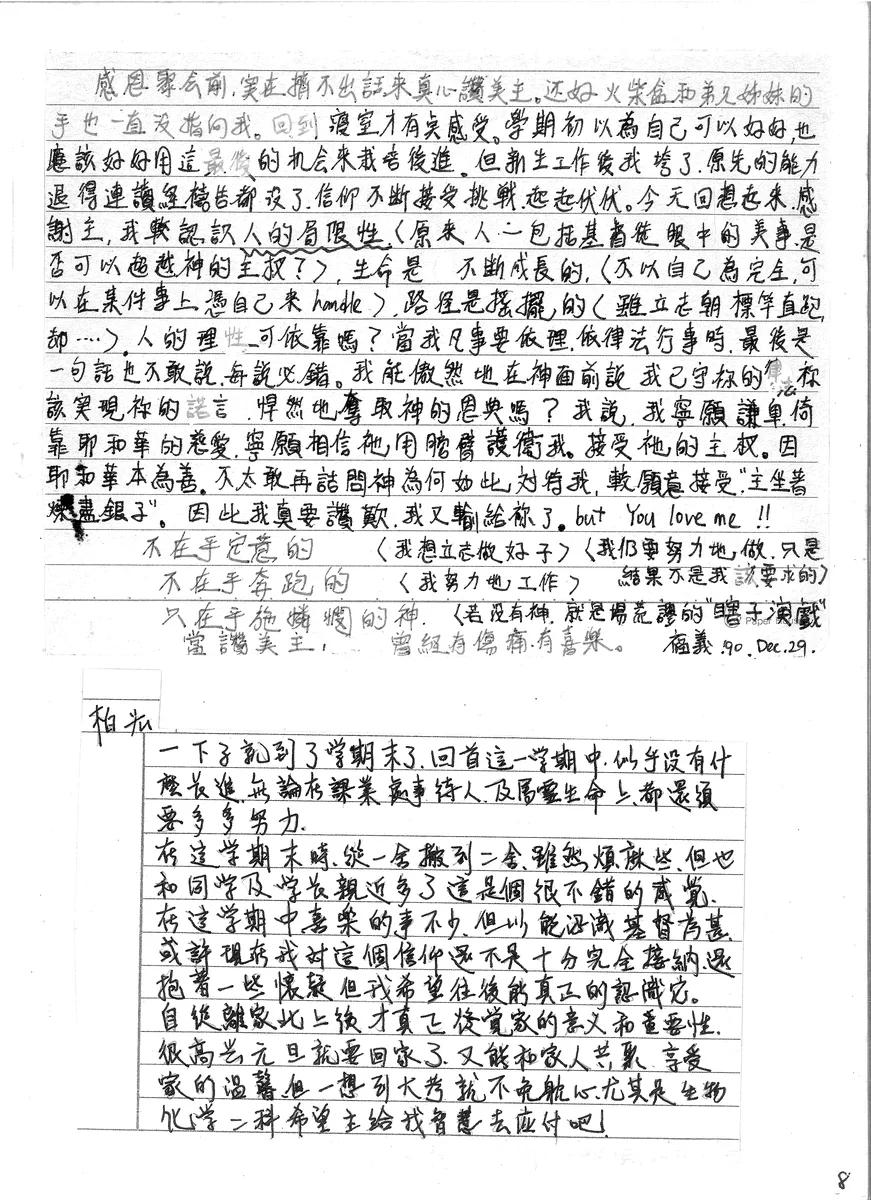 感恩聚会前,实在擠不出話来真心讚美主。还好火柴盒和弟兄姊妹的
手也一直没指向我。回到寢室才有点感受。學期初以為自己可以好好,也
應該好好用這最後的机会来栽培後進。但新生工作後我垮了.原先的能力
退得連讀經禱告都没了.信仰不斷接受挑戦.起起伏伏。今天回想起来.感
謝主,我較認識人的局限性〈原来人一包括基督徒眼中的美事.是
否可以超越神的主权?〉,生命是 不断成長的,〈不以自己為完全,可
以在某件事上憑自己来handle〉,路徑是搖擺的〈雖立志朝標竿直跑,
却‥‥〉.人的理性可依靠嗎?當我凡事要依理.依律法行事時.最後是
一句話也不敢說.每說必錯。我能傲然地在神面前說我已守祢的律法祢
該实現祢的諾言.悍然地奪取神的恩典嗎?我說.我寧願謙卑.倚
靠耶和華的慈愛.寧願相信祂用膀臂護衛我。接受祂的主权。因
耶和華本為善。不太敢再詰問神為何如此对待我,較願意接受"主坐著
煉盡銀子"。因此我真要讚歎.我又輸給祢了。but You love me !!
不在乎定意的 〈我想立志做好子〉〈我仍要努力地做.只是
不在乎奔跑的 〈我努力地工作〉 結果不是我該要求的〉
只在乎施憐憫的神.〈若没有神.就是場荒謬的"瞎子演戲"〉
當讚美主, 曾經有傷痛.有喜樂。 .90.Dec.29.
柏
一下子就到了学期末了.回首這一学期中.似乎没有什
麼長進.無論在課業處事待人.及屬靈生命上.都還須
要多多努力.
在這学期末時.從一舍搬到二舍.雖然煩麻些.但也
和同学及学長親近多了這是個很不錯的感覺.
在這学期中喜樂的事不少.但以能認識基督為甚.
或許現在我对這個信仰还不是十分完全接納.還
抱著一些懷疑但我希望往後能真正的認識它。
自從離家北上後才真正發覺家的意义和重要性.
很高兴元旦就要回家了.又能和家人共聚.享受
家的温馨.但一想到大考就不免躭心.尤其是生物
化学二科希望主給我智慧去应付吧!
8